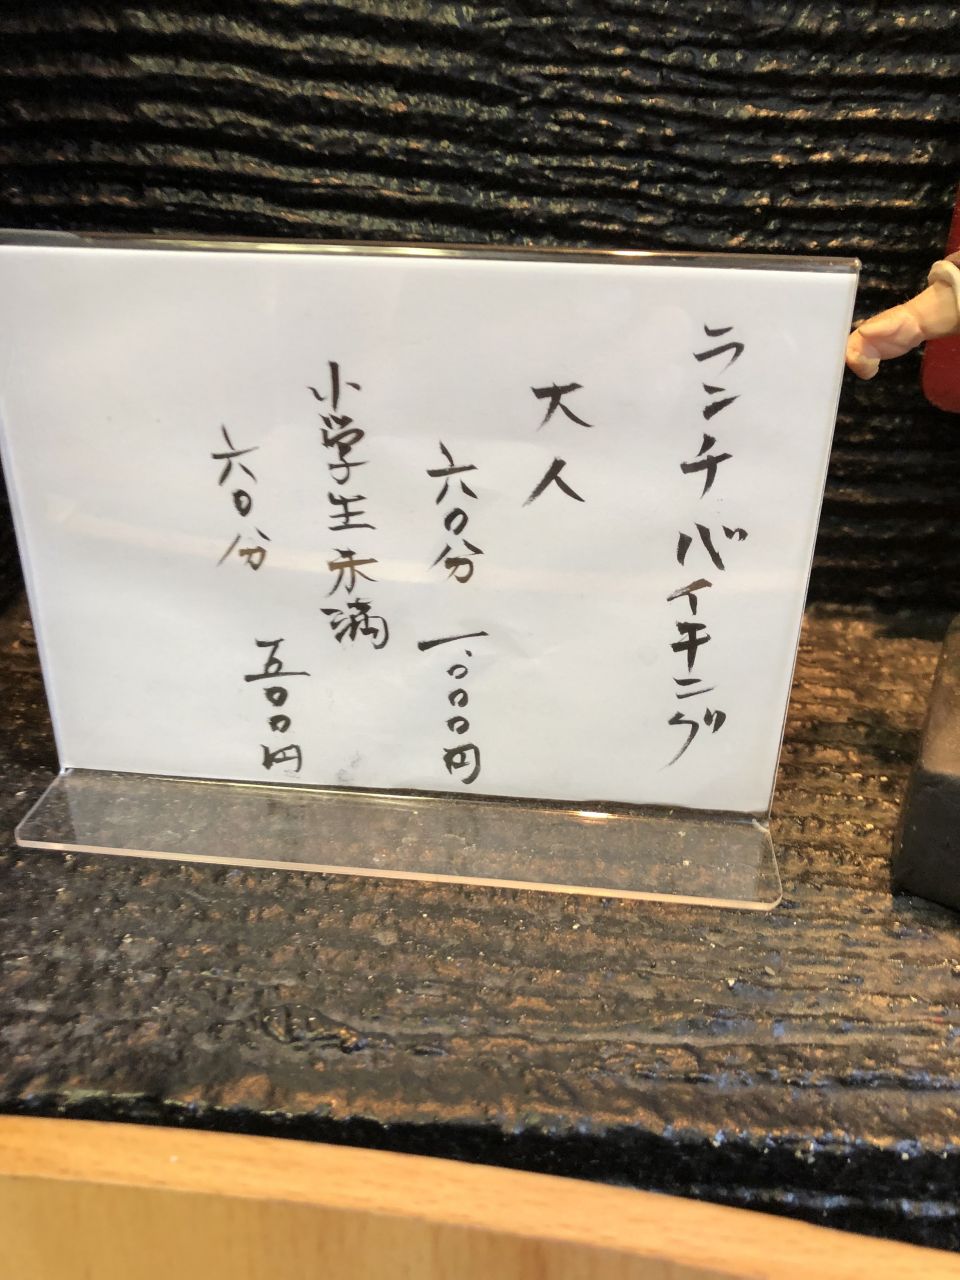 ランチバイキング
大人
六〇分 一、〇〇〇円
小学生未満
六〇分 五〇〇円